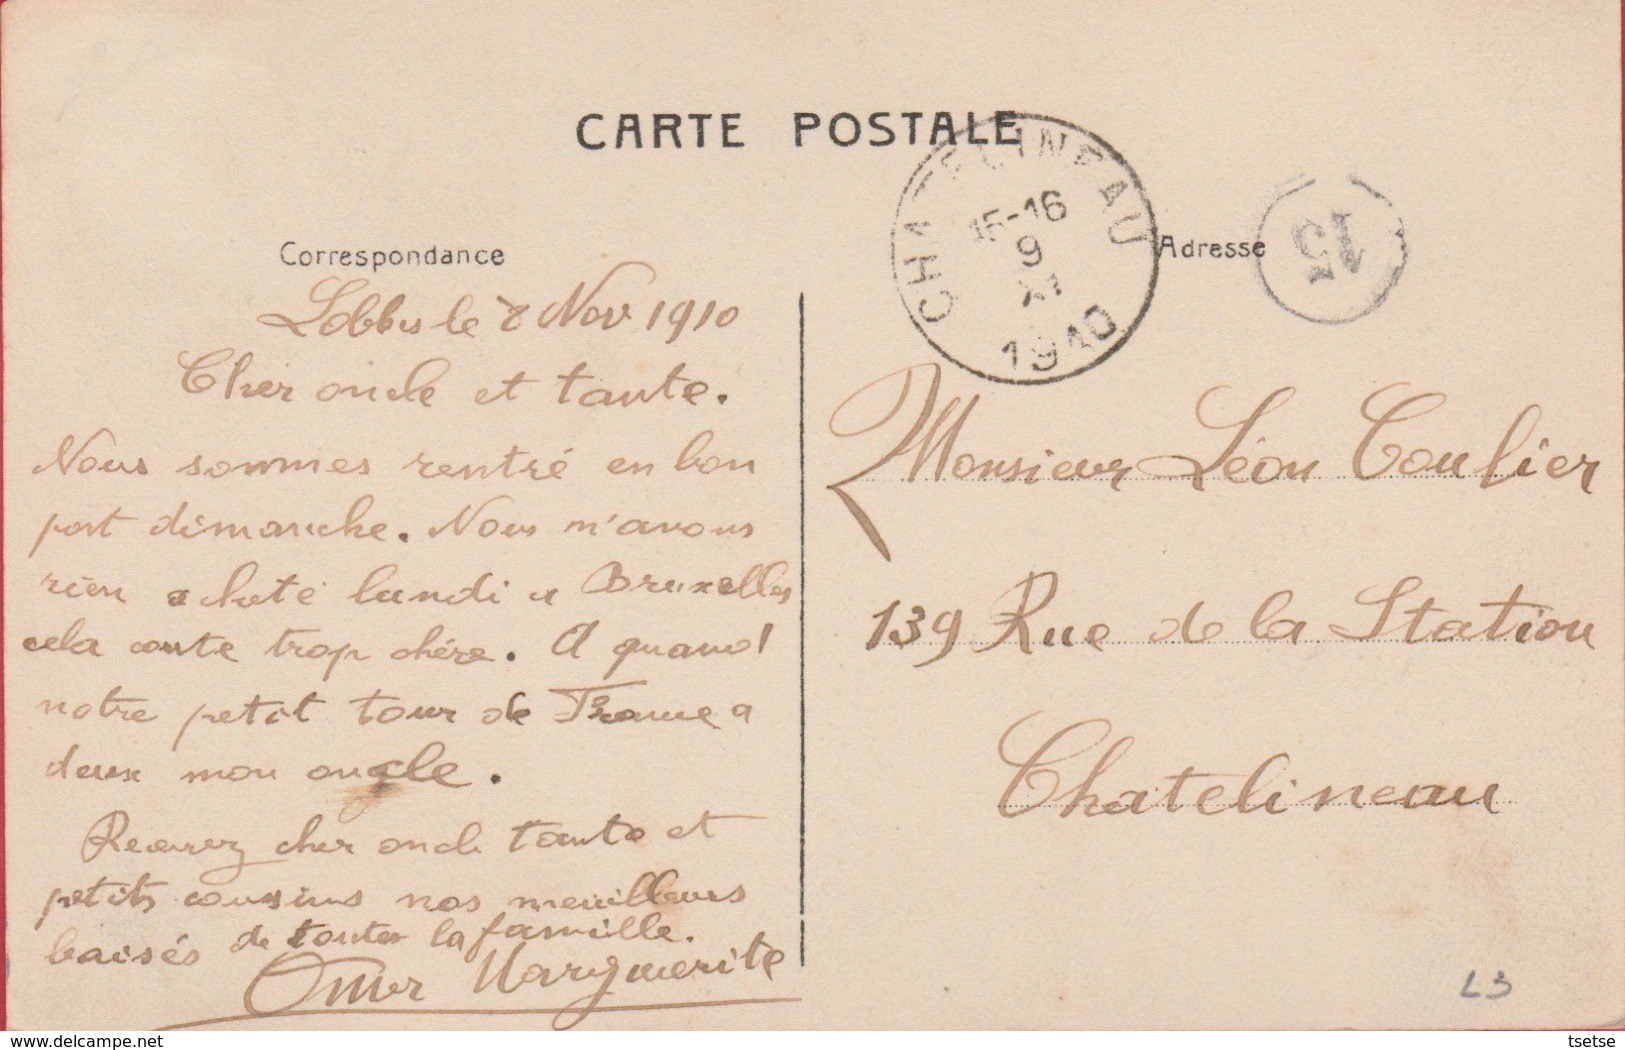 CARTE POSTALE
CHATELINEAU
15-16
9
XI
1910
15
Correspondance
Adresse
Lobbes le 8 Nov 1910
Cher oncle et tante.
Nous sommes rentré en bon
port dimanche. Nous n'avons
rien acheté lundi a Bruxelles
cela conte trop chére. A quand
notre petit tour de France a
deux mon ongle.
Recevez cher oncle tante et
petits cousins nos meuilleurs
baisés de toutes la famille.
Omer Marguerite
Monsieur Léon Coulier
139 Rue de la Station
Chatelineau
L3
delcampe.net
tsetse